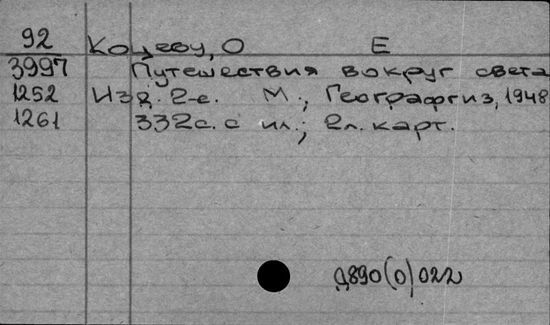 92 Коцебу, О Е
3997 Путешествия вокруг света
1252 Изд. 2-е. М., Географгиз, 1948
1261 332с. с ил.; 2л. карт.
д890(0)022